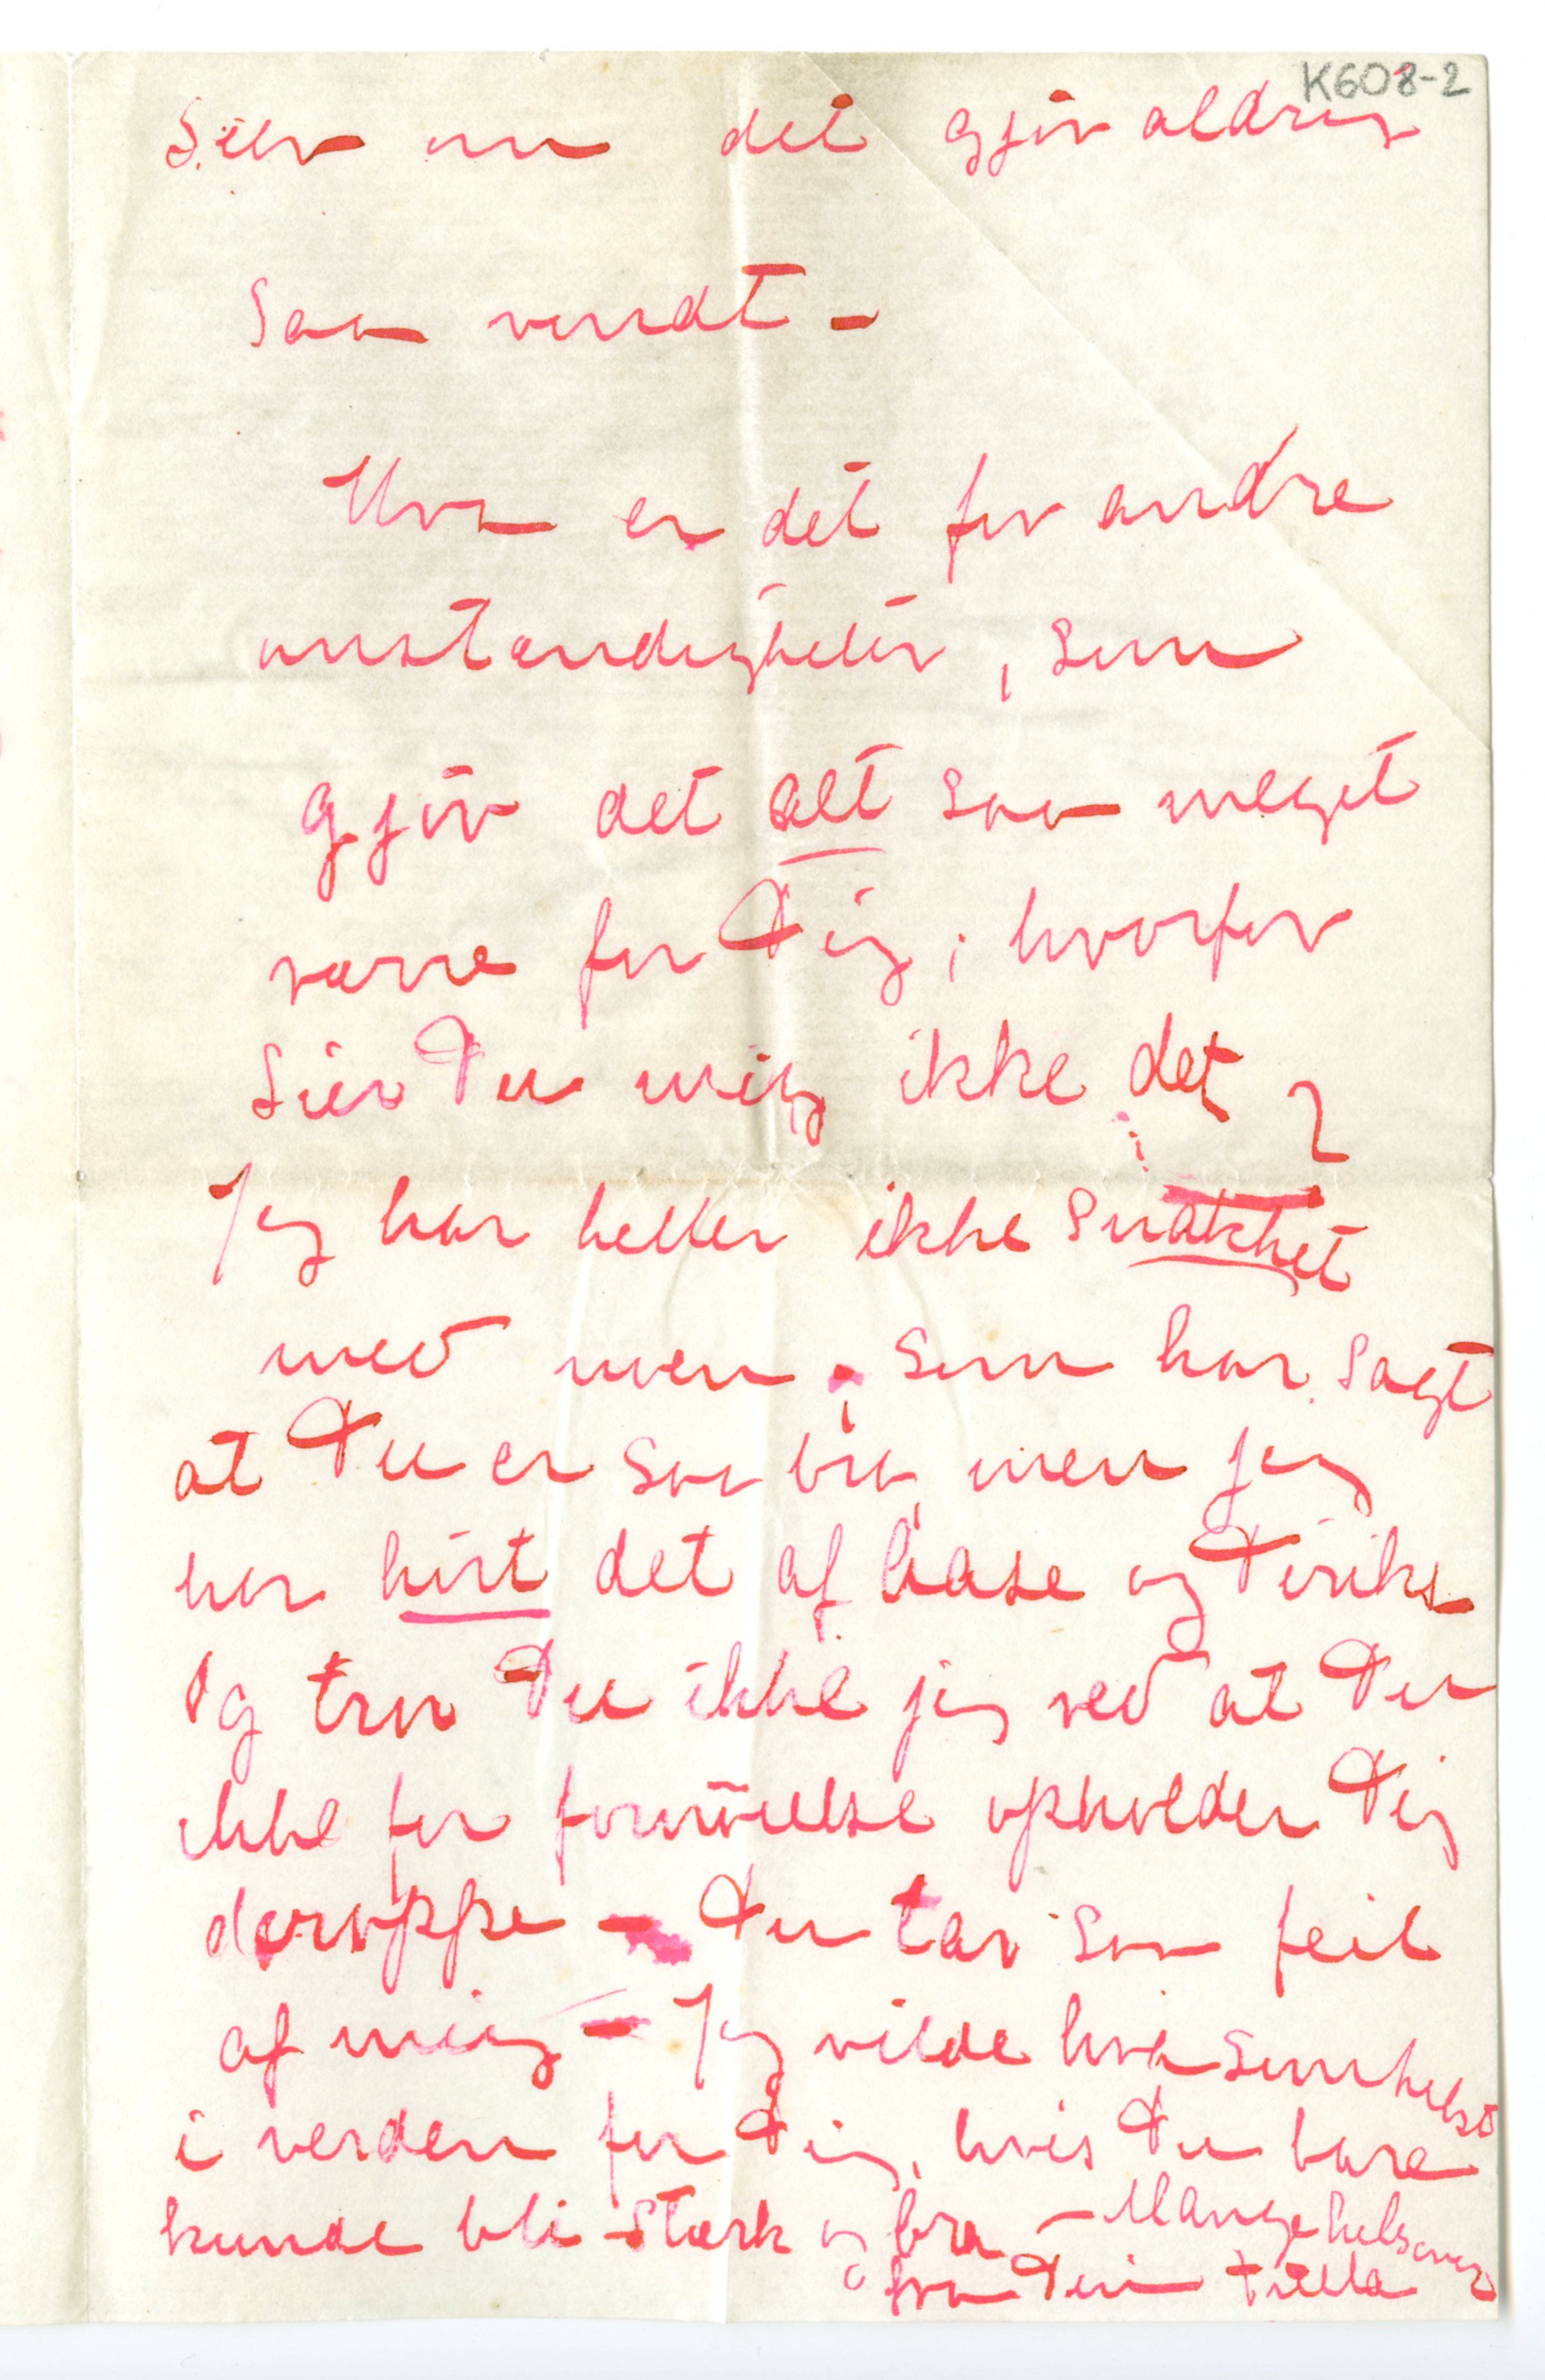 K608-2
Selv om det gjør aldrig
saa vondt –
Hva er det for andre
omstændigheter, som
gjør det alt saa meget
værre for Dig; hvorfor
sier Du mig ikke det?
Jeg har heller ikke snakket
med noen, som har sagt
at Du er saa bra, men jeg
har hørt det af Aase og
Og tror Du ikke jeg ved at Du
ikke for fornøielse opholder Dig
deroppe – Du tar saa feil
af mig – Jeg vilde hva somhelst
i verden for Dig, hvis Du bare
kunde bli stærk og bra – Mange hilsener
fra Din Tulla